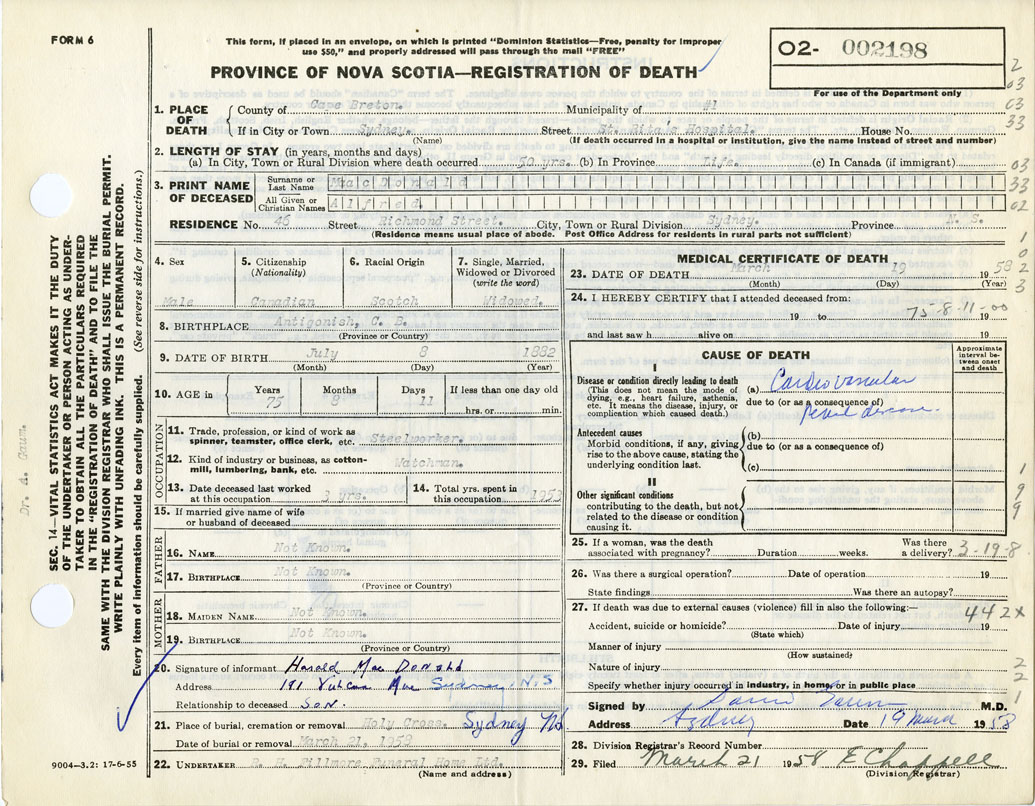 FORM 6
This form, if placed in an envelope, on which is printed "Dominion Statistics—Free, penalty for improper
use $50," and properly addressed will pass through the mail "FREE"
O2- 002198
For use of the Department only
PROVINCE OF NOVA SCOTIA—REGISTRATION OF DEATH
1. PLACE OF DEATH
County of Cape Breton. Municipality of #1
If in City or Town Sydney. Street St. Rita's Hospital. House No.
(Name) (If death occurred in a hospital or institution, give the name instead of street and number)
2. LENGTH OF STAY (in years, months and days)
(a) In City, Town or Rural Division where death occurred 50 yrs. (b) In Province Life. (c) In Canada (if immigrant)
3. PRINT NAME OF DECEASED
Surname or Last Name MacDonald
All Given or Christian Names Alfred.
RESIDENCE No. 46 Street Richmond Street. City, Town or Rural Division Sydney. Province N. S.
(Residence means usual place of abode. Post Office Address for residents in rural parts not sufficient)
4. Sex
Male
5. Citizenship
(Nationality)
Canadian
6. Racial Origin
Scotch
7. Single, Married,
Widowed or Divorced
(write the word)
Widowed.
8. BIRTHPLACE Antigonish, C. B.
(Province or Country)
9. DATE OF BIRTH July 8 1882
(Month) (Day) (Year)
10. AGE in
Years 75
Months 8
Days 11
If less than one day old
hrs. or min.
OCCUPATION
11. Trade, profession, or kind of work as
spinner, teamster, office clerk, etc. Steelworker.
12. Kind of industry or business, as cotton-
mill, lumbering, bank, etc. Watchman.
13. Date deceased last worked
at this occupation 3 yrs.
14. Total yrs. spent in
this occupation 1953
15. If married give name of wife
or husband of deceased
FATHER
16. NAME Not Known.
17. BIRTHPLACE Not Known.
(Province or Country)
MOTHER
18. MAIDEN NAME Not Known.
19. BIRTHPLACE Not Known.
(Province or Country)
20. Signature of informant Harold MacDonald
Address 191 Vulcan Ave Sydney, N.S
Relationship to deceased Son.
21. Place of burial, cremation or removal Holy Cross. Sydney NS.
Date of burial or removal March 21, 1958
22. UNDERTAKER R. H. Fillmore Funeral Home Ltd.
(Name and address)
9004—3.2: 17-6-55
MEDICAL CERTIFICATE OF DEATH
23. DATE OF DEATH March 19 1958
(Month) (Day) (Year)
24. I HEREBY CERTIFY that I attended deceased from:
19 to 75-8-11-00 19
and last saw h alive on 19
CAUSE OF DEATH
Approximate
interval be-
tween onset
and death
I
Disease or condition directly leading to death
(This does not mean the mode of
dying, e.g., heart failure, asthenia,
etc. It means the disease, injury, or
complication which caused death.)
(a) Cardiovascular
due to (or as a consequence of)
renal disease.
Antecedent causes
Morbid conditions, if any, giving
rise to the above cause, stating the
underlying condition last.
(b)
due to (or as a consequence of)
(c)
II
Other significant conditions
contributing to the death, but not
related to the disease or condition
causing it.
25. If a woman, was the death
associated with pregnancy? Duration weeks.
Was there
a delivery? 3-19-8
26. Was there a surgical operation? Date of operation 19
State findings Was there an autopsy?
27. If death was due to external causes (violence) fill in also the following:—
442x
Accident, suicide or homicide? Date of injury 19
(State which)
Manner of injury
(How sustained)
Nature of injury
Specify whether injury occurred in industry, in home, or in public place
Signed by M.D.
Address Sydney Date 19 March 1958
28. Division Registrar's Record Number
29. Filed March 21 1958 E Chappell
(Division Registrar)
2
03
03
33
03
33
02
1
0
2
3
1
9
9
2
2
1
SEC. 14—VITAL STATISTICS ACT MAKES IT THE DUTY
OF THE UNDERTAKER OR PERSON ACTING AS UNDER-
TAKER TO OBTAIN ALL THE PARTICULARS REQUIRED
IN THE "REGISTRATION OF DEATH" AND TO FILE THE
SAME WITH THE DIVISION REGISTRAR WHO SHALL ISSUE THE BURIAL PERMIT.
WRITE PLAINLY WITH UNFADING INK. THIS IS A PERMANENT RECORD.
Every item of information should be carefully supplied. (See reverse side for instructions.)
Dr. A. Gaum.